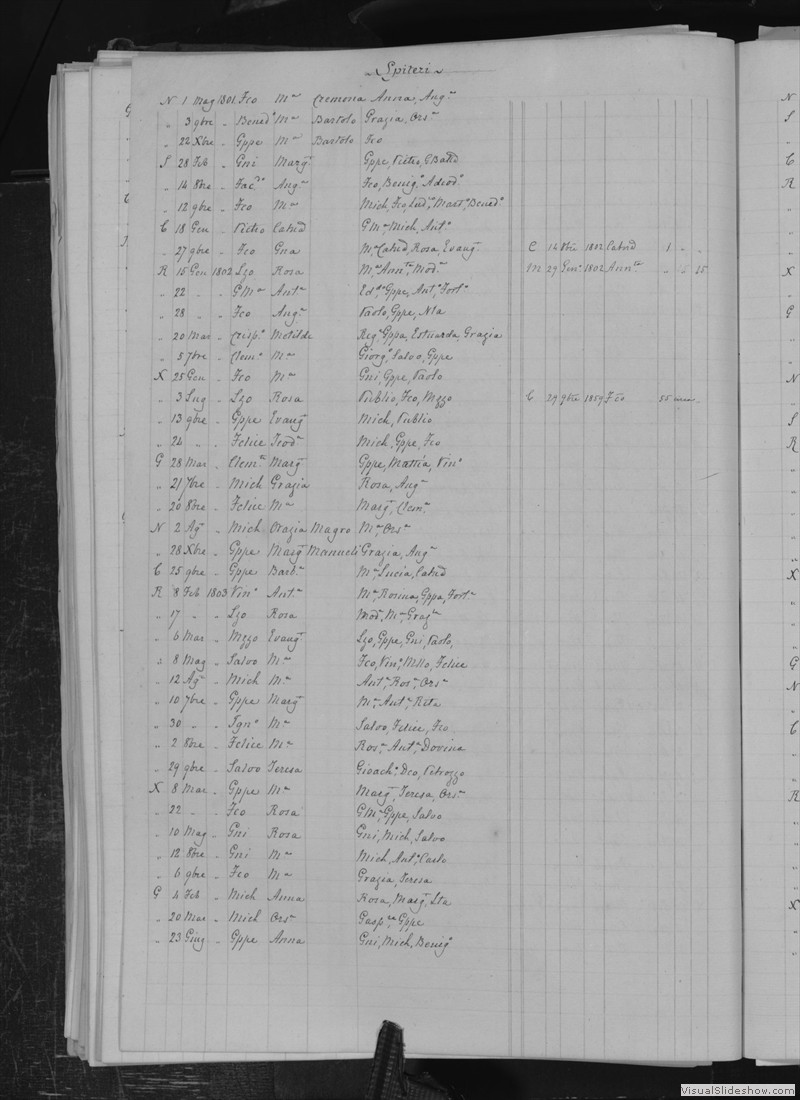 Spiteri
N 1 Mag 1801 Fco Mª Cremona Anna, Augª
„ 3 9bre „ Bened° Mª Bartolo Grazia, Orsª
„ 22 Xbre „ Gppe Mª Bartolo Fco
S 28 Feb „ Gni Margª Gppe, Pietro,
„ 14 8bre „ Augª Fco, Benig°,
„ 12 9bre „ Fco Mª Mich, Fco, Bened°
C 18 Gen „ Pietro Catnd G Mª, Mich, Ant°
„ 27 9bre „ Fco Gna Mª Catnd, Rosa, Evangª C 12 8bre 1802 Catnd 1 „ „
R 15 Gen 1802 Lzo Rosa Mª, Modª M 29 Gen° 1802 „ 15
„ 22 „ „ G Mª Antª Gppe, Ant°, Fortª
„ 28 „ „ Fco Augª Paolo, Gppe, Nla
„ 20 Mar „ Crisp° Motilde Reg°, Gppa, Estuarda, Grazia
„ 5 7bre „ Clem° Mª Giorg°, Salvo, Gppe
X 25 Gen „ Fco Mª Gni, Gppe, Paolo
„ 3 Lug „ Lzo Rosa Publio, Fco, Mzzo C 29 9bre 1859 Fco 55
„ 13 9bre „ Gppe Evangª Mich, Publio
„ 24 „ „ Felice Teodª Mich, Gppe, Fco
G 28 Mar „ Clemte Margª Gppe, Mattia, Vin°
„ 21 7bre „ Mich Grazia Rosa, Augª
„ 20 8bre „ Felice Mª Margª, Clemª
N 2 Ag° „ Mich Orazia Magro Mª, Orsª
„ 28 Xbre „ Gppe Margª Mamueli Grazia, Augª
C 25 9bre „ Gppe Barbª Mª, Lucia, Catnd
R 8 Feb 1803 Vin° Antª Mª, Rosina, Gppa, Fortª
„ 17 „ „ Lzo Rosa Modª, Mª, Grazª
„ 6 Mar „ Mzzo Evangª Lzo, Gppe, Gni, Paolo,
„ 8 Mag „ Salvo Mª Fco, Vin°, Mllo, Felice
„ 12 Ag° „ Mich Mª Antª, Rosª, Orsª
„ 10 7bre „ Gppe Margª Mª, Antª, Rita
„ 30 „ „ Ign° Mª Salvo, Felice, Fco
„ 2 8bre „ Felice Mª Rosª, Antª, Dorina
„ 29 9bre „ Salvo Teresa Gioach°, Dco, Petrozzo
X 8 Mar „ Gppe Mª Margª, Teresa, Orsª
„ 22 „ „ Fco Rosa G Mª, Gppe, Salvo
„ 10 Mag „ Gni Rosa Gni, Mich, Salvo
„ 12 8bre „ Gni Mª Mich, Ant°, Carlo
„ 6 9bre „ Fco Mª Grazia, Teresa
G 4 Feb „ Mich Anna Rosa, Margª, Sta
„ 20 Mar „ Mich Orsª Gaspre, Gppe
„ 23 Giug „ Gppe Anna Gni, Mich, Benig°
VisualSlideshow.com